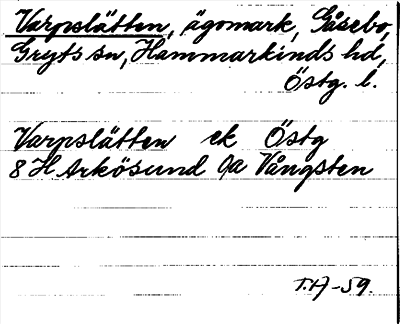 Varpslätten, ägomark, Gåsebo,
Gryts sn, Hammarkinds hd,
Östg. l.
Varpslätten ek Östg
8 H Arkösund 9a Vångsten
T.H-59.